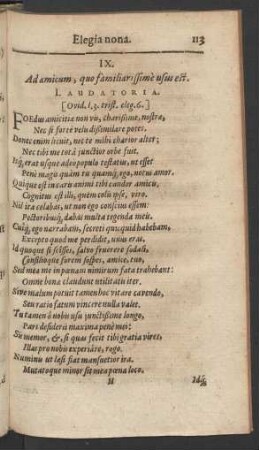 Elegia nona. 113
IX.
Ad amicum, quo familiarissimè usus est.
LAUDATORIA.
[Ovid. l.3. trist. eleg. 6.]
FOEdus amicitiæ nec vis, charissime, nostræ,
Nec si fortè velis dissimulare potes.
Donec enim licuit, nec te mihi charior alter;
Nec tibi me totâ junctior orbe fuit.
Itq́; erat usque adeo populo testatus, ut esset
Penè magis quàm tu quamq́; ego, notus amor.
Quiq́ue est in caris animi tibi candor amicis,
Cognitus est illi, quem colis ipse, vero.
Nil ita celabas, ut non ego conscius essem:
Pectoribusq́; dabas multa tegenda meis.
Cuiq́; ego narrabam, secreti quicquid habebam,
Excepto quod me perdidit, unus eras.
Id quoque si scisses, salvo fruerere sodali,
Consilioque forem sospes, amice, tuo,
Sed mea me in pœnam nimirum fata trahebant:
Omne bona claudunt utilitatis iter.
Sive malum potuit tamen hoc vitare cavendo,
Seu ratio fatum vincere nulla valet.
Tu tamen ô nobis usu junctissime longo,
Pars desiderii maxima penè mei:
Sis memor, &, si quas fecit tibi gratia vires,
Illas pro nobis experiare, rogo.
Numinis ut læsi fiat mansuetior ira.
Mutatoque minor sit mea pœna loco.
H Idq́;